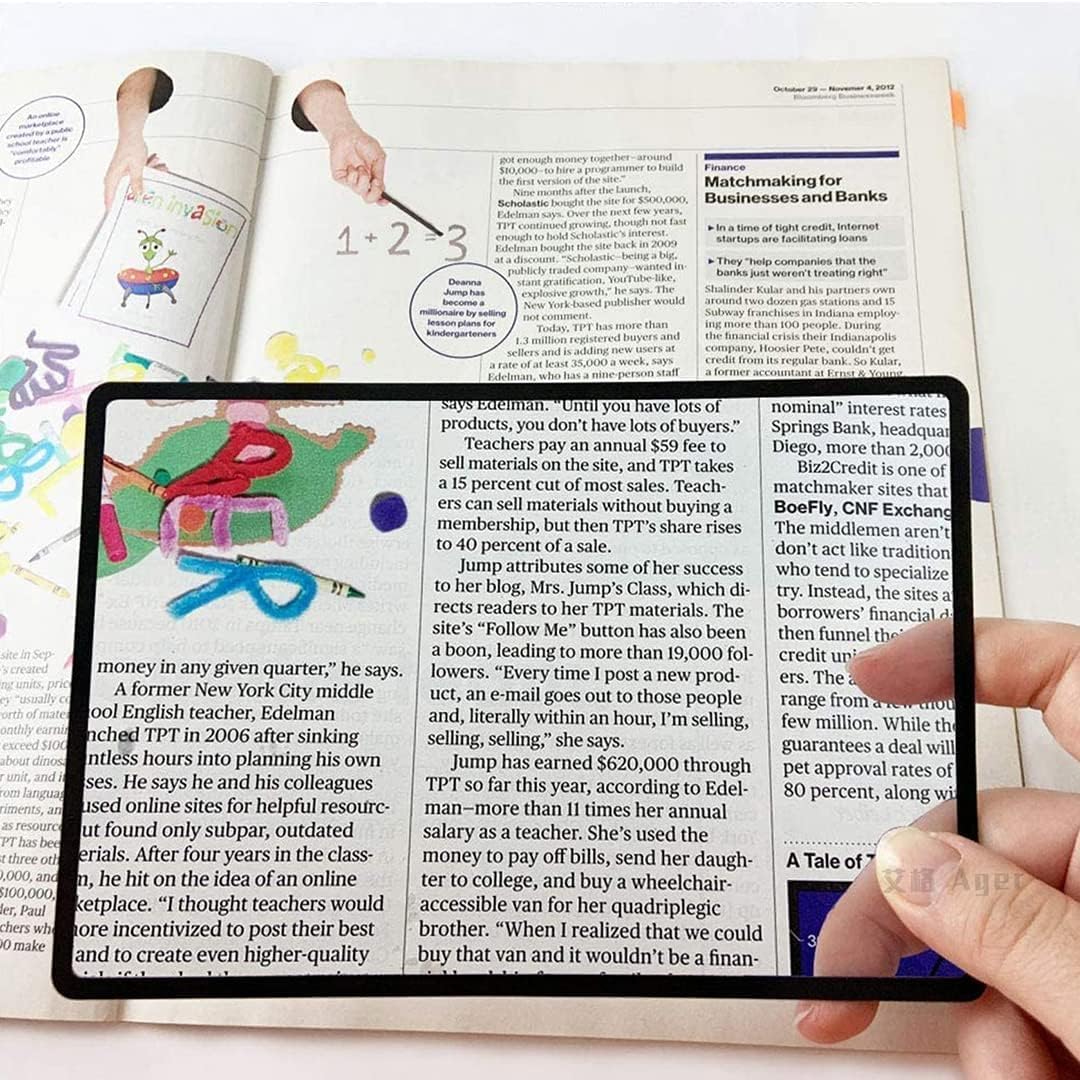 October 29 — Novemer 4, 2012
Bloomberg Businessweek
An online
marketplace
created by a public
school teacher is
"comfortably"
profitable
alien invasion
1 + 2 = 3
Deanna
Jump has
become a
millionaire by selling
lesson plans for
kindergarteners
got enough money together—around
$10,000—to hire a programmer to build
the first version of the site."
Nine months after the launch,
Scholastic bought the site for $500,000,
Edelman says. Over the next few years,
TPT continued growing, though not fast
enough to hold Scholastic's interest.
Edelman bought the site back in 2009
at a discount. "Scholastic—being a big,
publicly traded company—wanted in-
stant gratification, YouTube-like,
explosive growth," he says. The
New York-based publisher would
not comment.
Today, TPT has more than
1.3 million registered buyers and
sellers and is adding new users at
a rate of at least 35,000 a week, says
Edelman, who has a nine-person staff
Finance
Matchmaking for
Businesses and Banks
In a time of tight credit, Internet
startups are facilitating loans
They "help companies that the
banks just weren't treating right"
Shalinder Kular and his partners own
around two dozen gas stations and 15
Subway franchises in Indiana employ-
ing more than 100 people. During
the financial crisis their Indianapolis
company, Hoosier Pete, couldn't get
credit from its regular bank. So Kular,
a former accountant at Ernst & Young,
site in Sep-
's created
ing units, price
ey "usually co
orth of mater
onthly earnin
exceed $100
about dinos
r unit, and i
rom languag
riments, an
as resource
TPT has bee
st three oth
0,000, and
$100,000,
der, Paul
chers wh
00 make
money in any given quarter," he says.
A former New York City middle
ool English teacher, Edelman
nched TPT in 2006 after sinking
ntless hours into planning his own
ses. He says he and his colleagues
used online sites for helpful resourc-
ut found only subpar, outdated
erials. After four years in the class-
m, he hit on the idea of an online
ketplace. "I thought teachers would
ore incentivized to post their best
and to create even higher-quality
says Edelman. "Until you have lots of
products, you don't have lots of buyers."
Teachers pay an annual $59 fee to
sell materials on the site, and TPT takes
a 15 percent cut of most sales. Teach-
ers can sell materials without buying a
membership, but then TPT's share rises
to 40 percent of a sale.
Jump attributes some of her success
to her blog, Mrs. Jump's Class, which di-
rects readers to her TPT materials. The
site's "Follow Me" button has also been
a boon, leading to more than 19,000 fol-
lowers. "Every time I post a new prod-
uct, an e-mail goes out to those people
and, literally within an hour, I'm selling,
selling, selling," she says.
Jump has earned $620,000 through
TPT so far this year, according to Edel-
man—more than 11 times her annual
salary as a teacher. She's used the
money to pay off bills, send her daugh-
ter to college, and buy a wheelchair-
accessible van for her quadriplegic
brother. "When I realized that we could
buy that van and it wouldn't be a finan-
nominal" interest rates
Springs Bank, headquar
Diego, more than 2,000
Biz2Credit is one of
matchmaker sites that
BoeFly, CNF Exchang
The middlemen aren't
don't act like tradition
who tend to specialize
try. Instead, the sites a
borrowers' financial d
then funnel the
credit uni
ers. The a
range from a few thou
few million. While the
guarantees a deal will
pet approval rates of
80 percent, along wi
A Tale of T
3
艾格 Ager